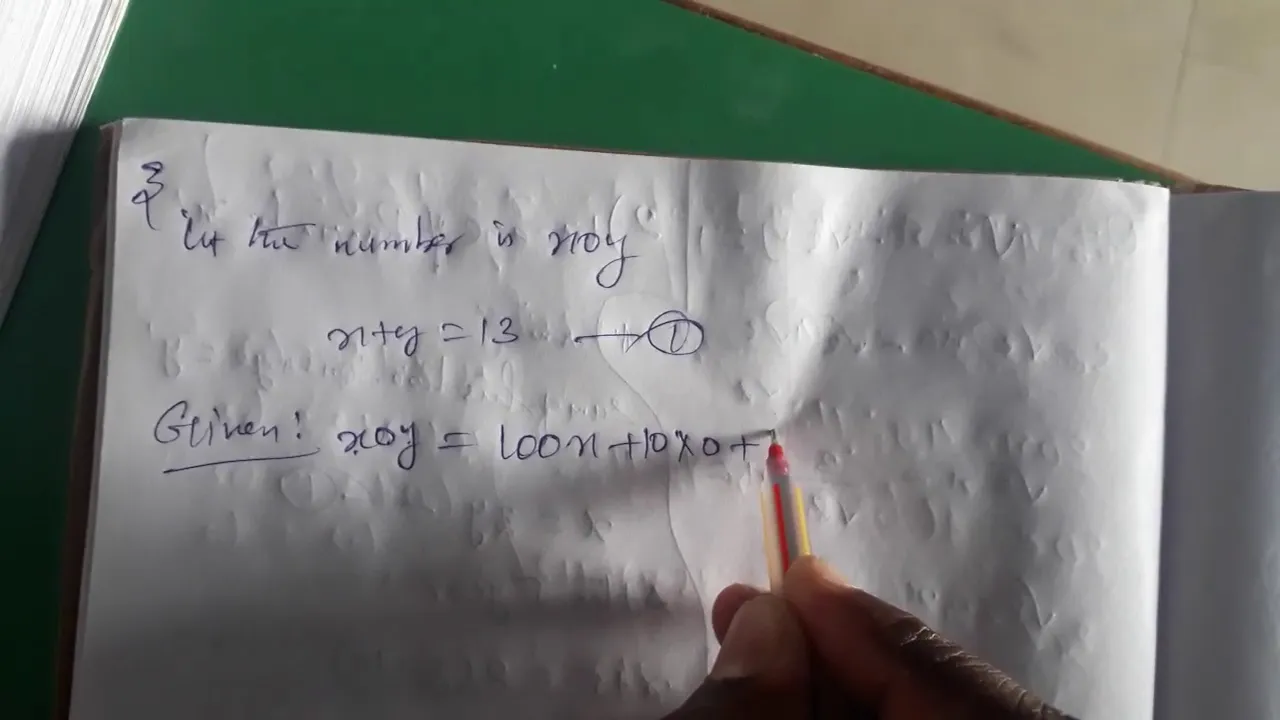 Let the number is x0y
x+y = 13 → ①
Given: x0y = 100x + 10×0 +